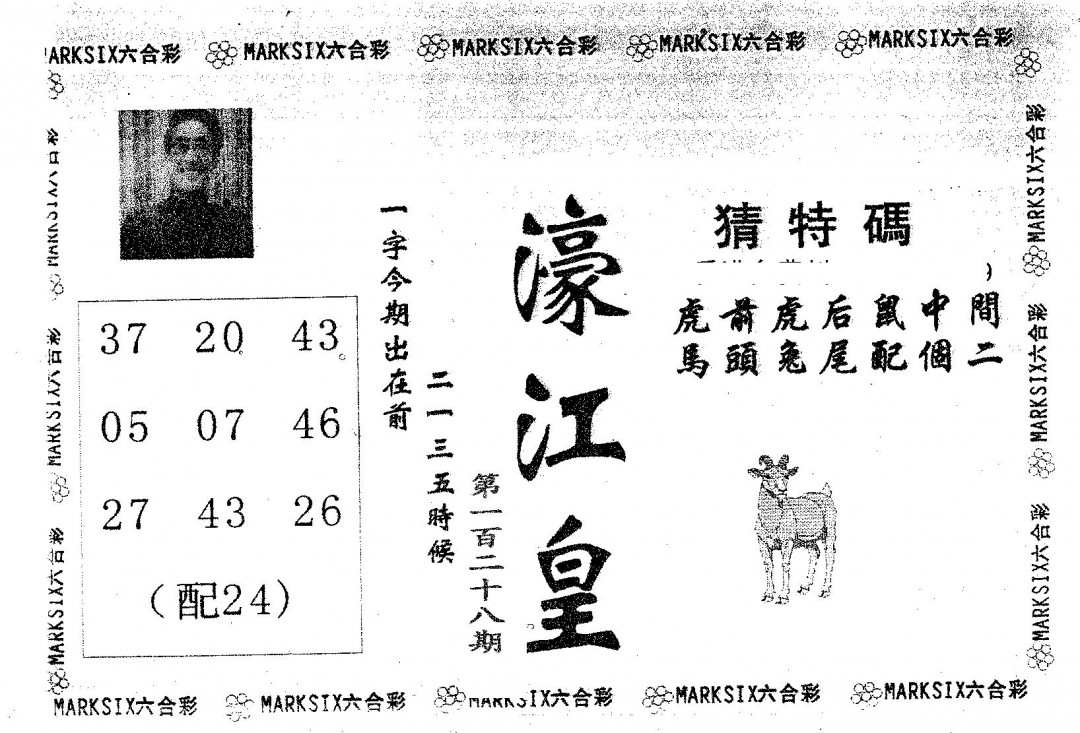 MARKSIX六合彩 MARKSIX六合彩 MARKSIX六合彩 MARKSIX六合彩
猜特碼
虎前虎后鼠中間
馬頭兔尾配個二
濠江皇
第一百二十八期
一字今期出在前
二一三五時候
37 20 43
05 07 46
27 43 26
(配24)
MARKSIX六合彩
MARKSIX六合彩
MARKSIX六合彩
MARKSIX六合彩
MARKSIX六合彩
MARKSIX六合彩 MARKSIX六合彩 MARKSIX六合彩 MARKSIX六合彩